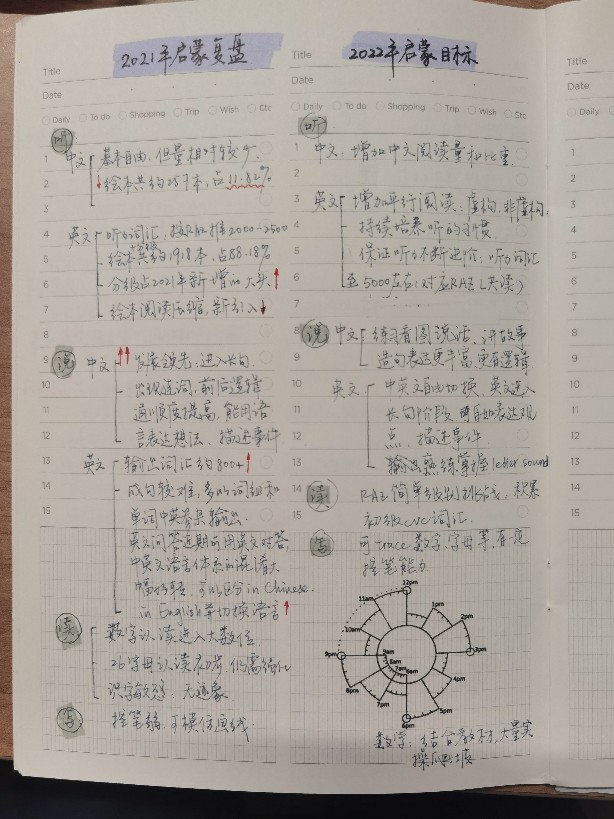 Title 2021年启蒙复盘
Date
Daily To do Shopping Trip Wish Etc
听
中文 基本自由,但量相对较少.
绘本共约257本,占11.82%
英文 听力词汇:按RAZ推2000-2500
绘本共约1918本,占88.18%
分级
分级占2021年新增的大头
绘本阅读压缩,新引入
说 中文 发展领先:进入长句.
出现连词,前后逻辑
通顺度提高,能用语
言表达想法、描述事件
英文 输出词汇约800+
成句较难,多以词组和
单词中英夹杂输出.
英文问答近期可用英文对答,
中英文语言体系的混淆大
幅好转,可以区分in Chinese.
in English等切换语言
读 数字认读进入大数位
26字母认读初步,仍需强化
识字敏感:无迹象.
写 控笔弱,可模仿画线.
1
2
3
4
5
6
7
8
9
10
11
12
13
14
15
Title 2022年启蒙目标
Date
Daily To do Shopping Trip Wish Etc
听
中文:增加中文阅读量和比重.
英文 增加平行阅读:虚构,非虚构,
持续培养听的习惯.
保证听力不断进阶:听力词汇
至5000左右(对应RAZ L共读)
说 中文 练习看图说话、讲故事
造句表达更丰富,更有逻辑
英文 中英文自由切换,英文进入
长句阶段,可自如表达观
点、描述事件.
输出熟练掌握letter sound
读 RAZ简单级别挑战:积累
初级cvc词汇.
写 可trace数字、字母等,有一定
控笔能力
1
2
3
4
5
6
7
8
9
10
11
12
13
14
15
12pm
11am
1pm
10am
2pm
9am
8am
7am
6am
9pm
3pm
8pm
4pm
7pm
5pm
6pm
数学:结合教材,大量实
操
Title
Date
Daily
1
2
3
4
5
6
7
8
9
10
11
12
13
14
15